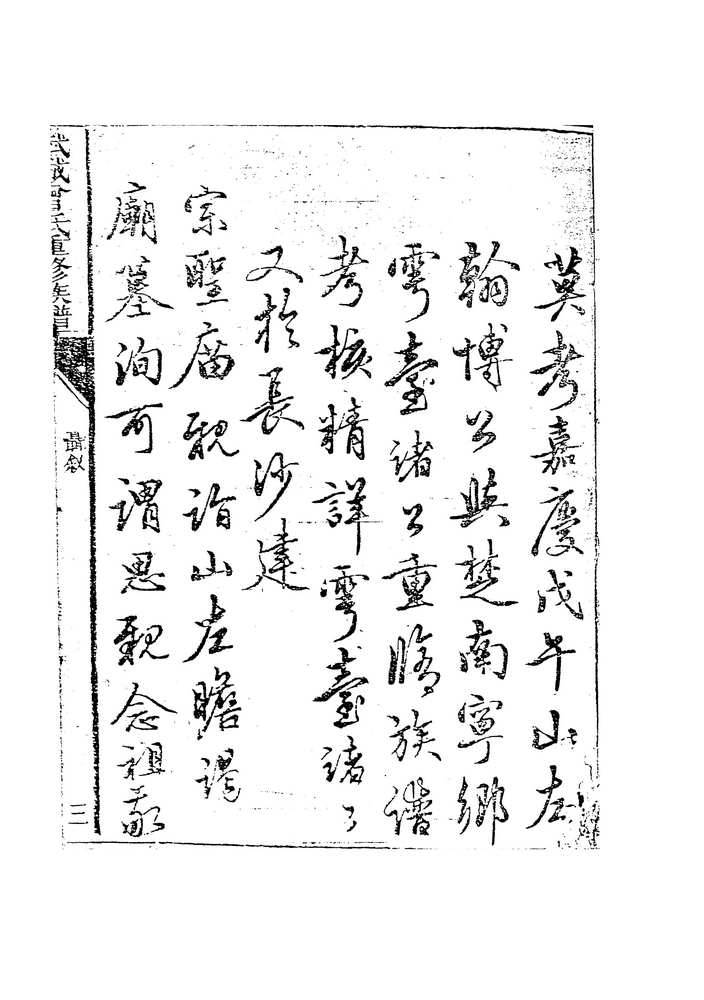 英考嘉慶戊午山左
翰博公與楚南寧鄉
雩臺諸公重脩族譜
考核精詳雩臺諸公
又於長沙建
宗聖廟親詣山左瞻謁
廟墓洵可謂思親念祖敬
武城曾氏重修族譜
敘
三